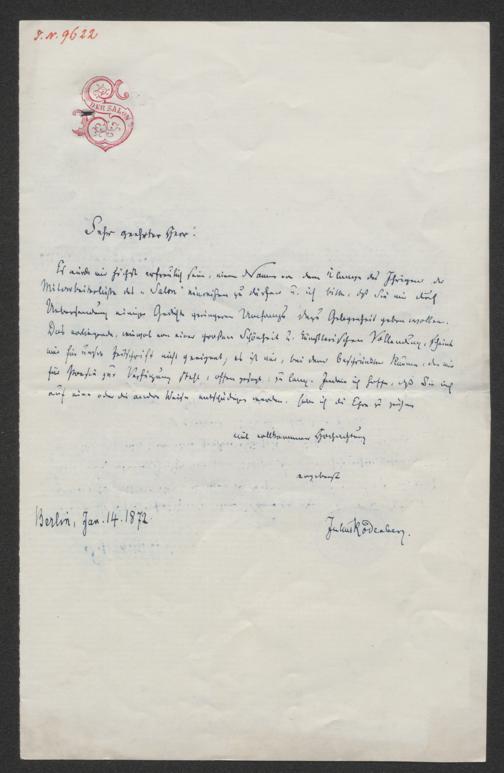 I.N. 9622
DER SALON
Sehr geehrter Herr!
Es würde mir höchst erfreulich sein, einen Namen von dem Klange des Ihrigen der
Mitarbeiterliste des „Salon" einreihen zu dürfen u. ich bitte, daß Sie mir durch
Uebersendung einiger Gedichte geringeren Umfangs dazu Gelegenheit geben wollen.
Das vorliegende, wiewol von einer großen Schönheit u. künstlerischen Vollendung, scheint
mir für unsre Zeitschrift nicht geeignet, es ist mir, bei dem beschränkten Raume, der mir
für Poesie zur Verfügung steht, offen gesagt, zu lang. Indem ich hoffe, daß Sie mich
auf eine oder die andre Weise entschädigen werden, habe ich die Ehre zu zeichnen
mit vollkommener Hochachtung
ergebenst
Berlin, Jan. 14. 1872
Julius Rodenberg.